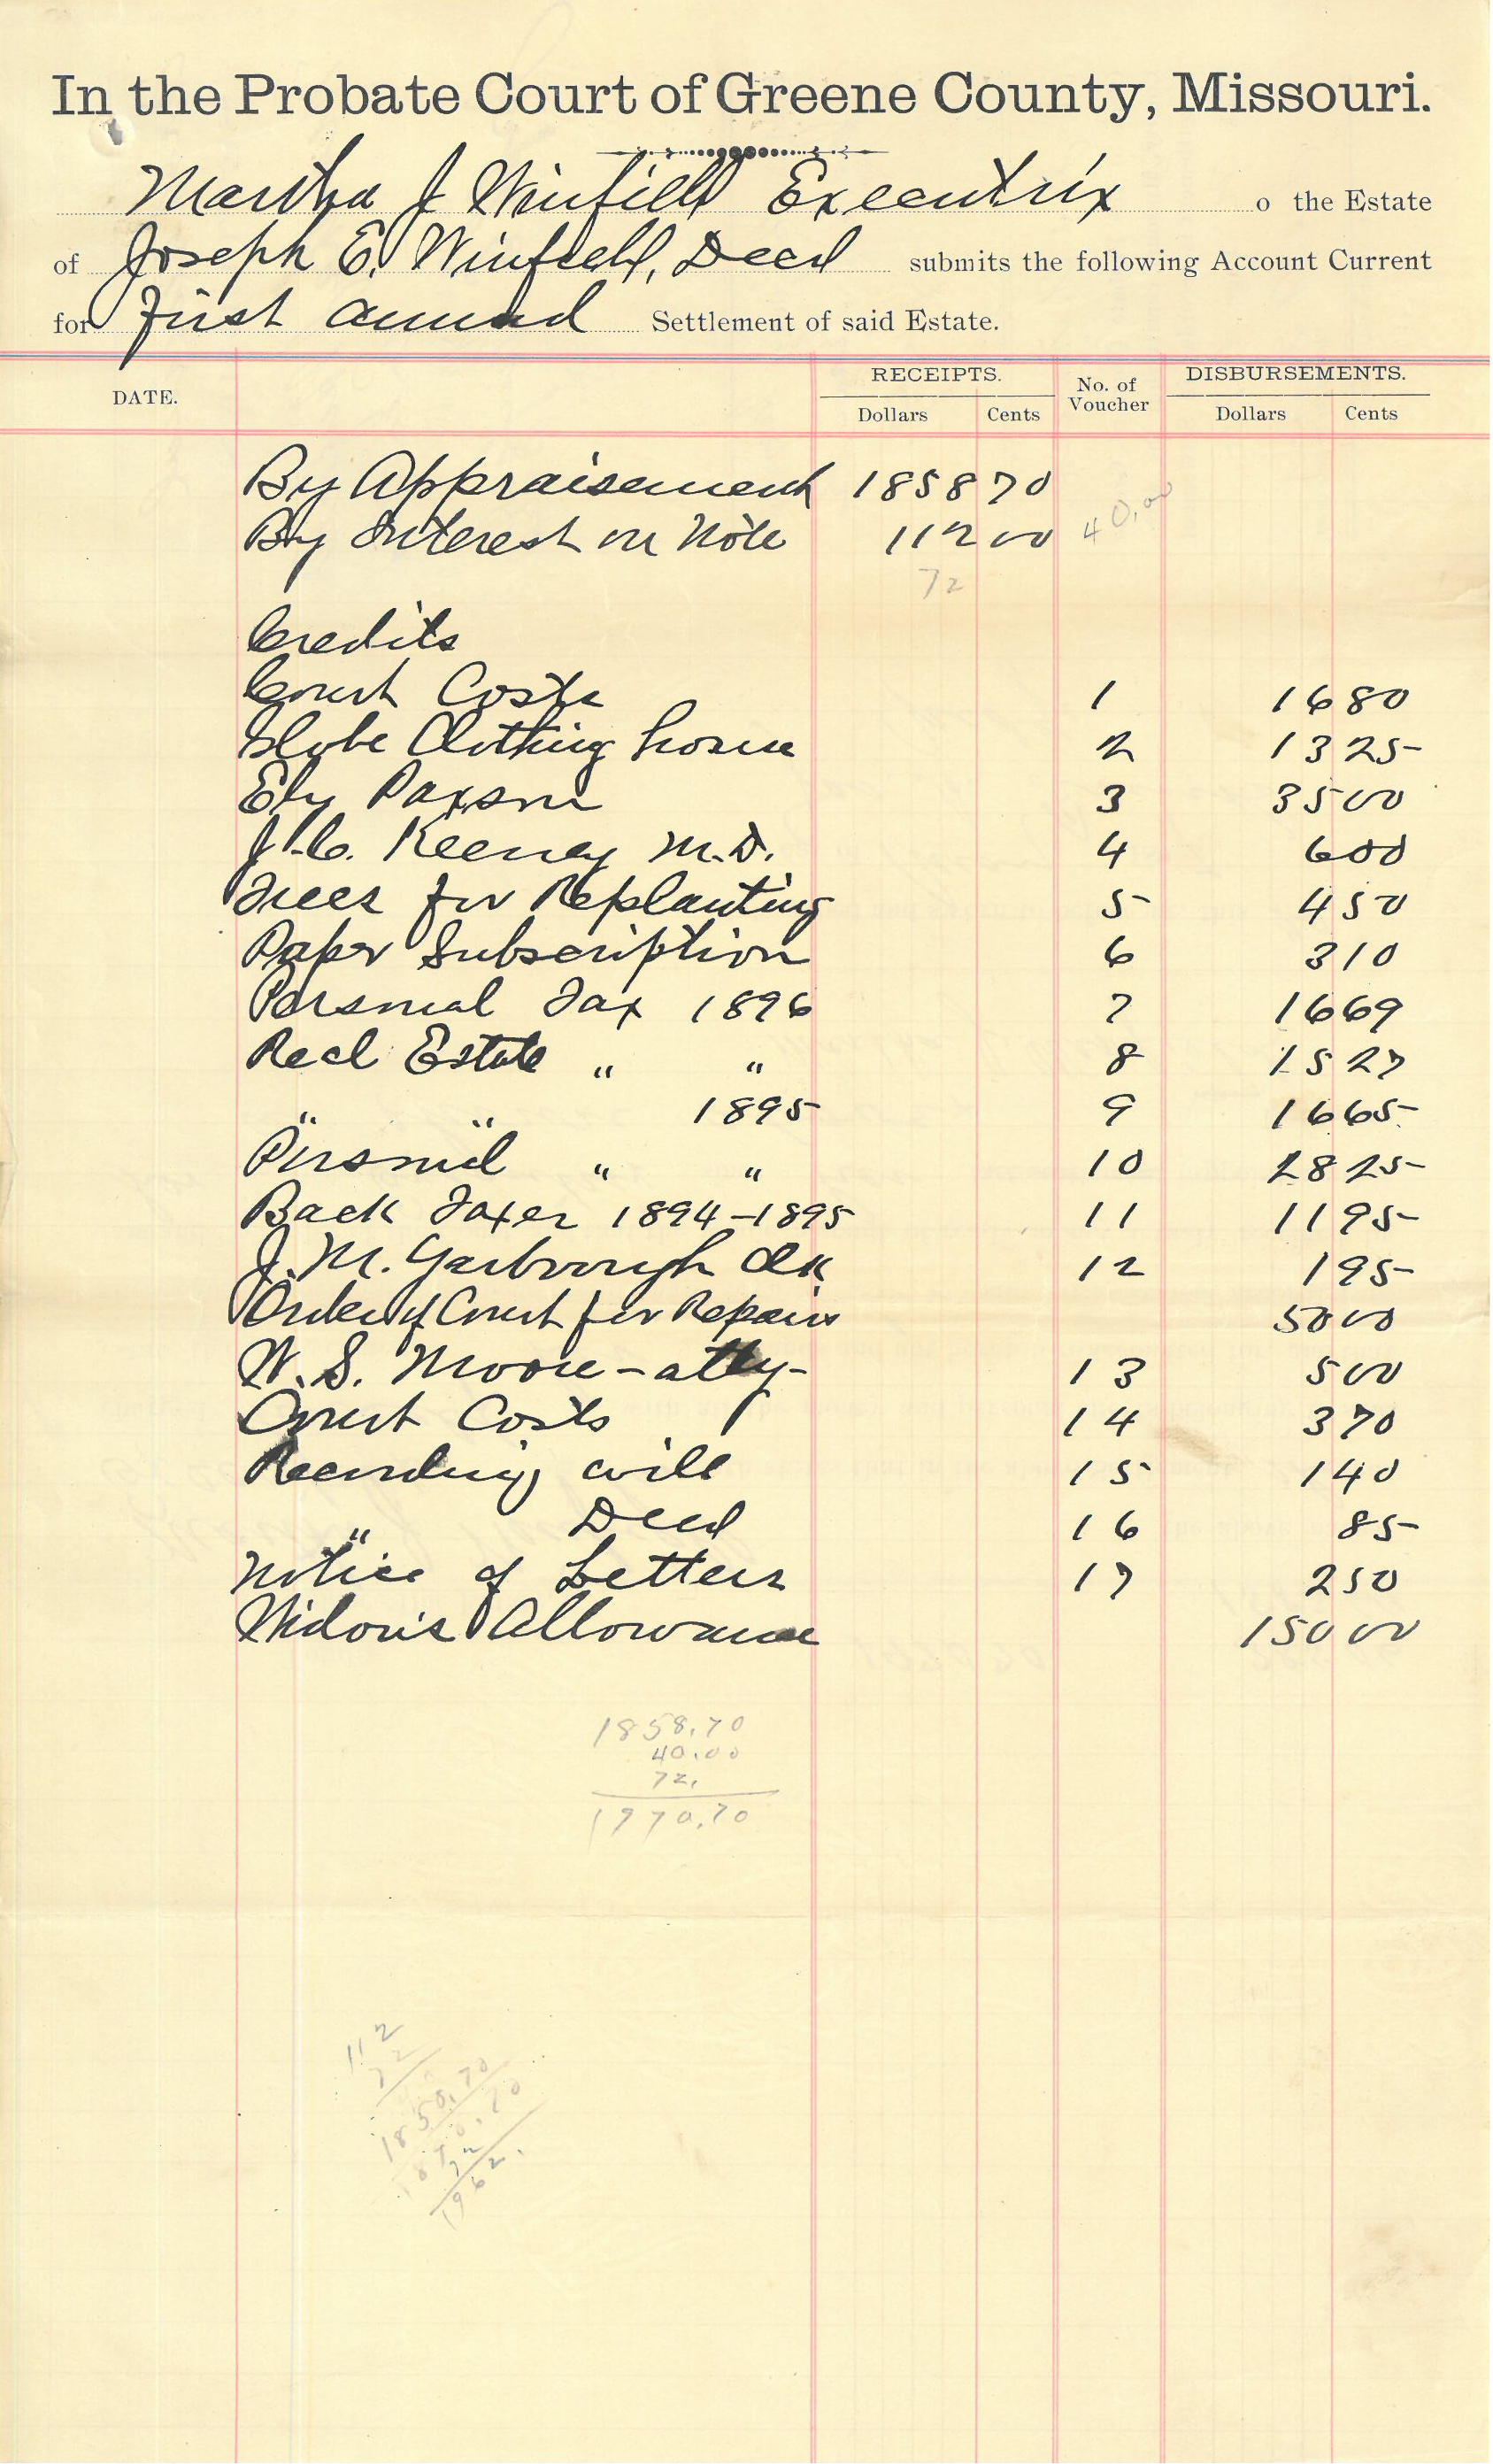 In the Probate Court of Greene County, Missouri.
Martha J Winfield Executrix o the Estate
of Joseph E. Winfield, Decd submits the following Account Current
for First Annual Settlement of said Estate.
DATE. RECEIPTS. No. of Voucher DISBURSEMENTS.
Dollars Cents Dollars Cents
By Appraisement 1858 70
By Interest on Note 112 00 40.00
72
Credits
Court Costs 1 16 80
Globe Clothing house 2 13 25
Ely Paxson 3 35 00
J. C. Keeney M.D. 4 6 00
Trees for Replanting 5 4 50
Paper Subscription 6 3 10
Personal Tax 1896 7 16 69
Real Estate " " 8 15 27
" " 1895 9 16 65
Personal " " 10 28 25
Back Taxes 1894-1895 11 11 95
J. M. Yarbrough Clk 12 1 95
Order of Court for Repairs 50 00
W. S. Moore - atty - 13 5 00
Court Costs 14 3 70
Recording will 15 1 40
" Deed 16 85
Notice of Letters 17 2 50
Widow's Allowance 150 00
1858.70
40.00
72.
1970.70
112
72
1850.70
72
1962.